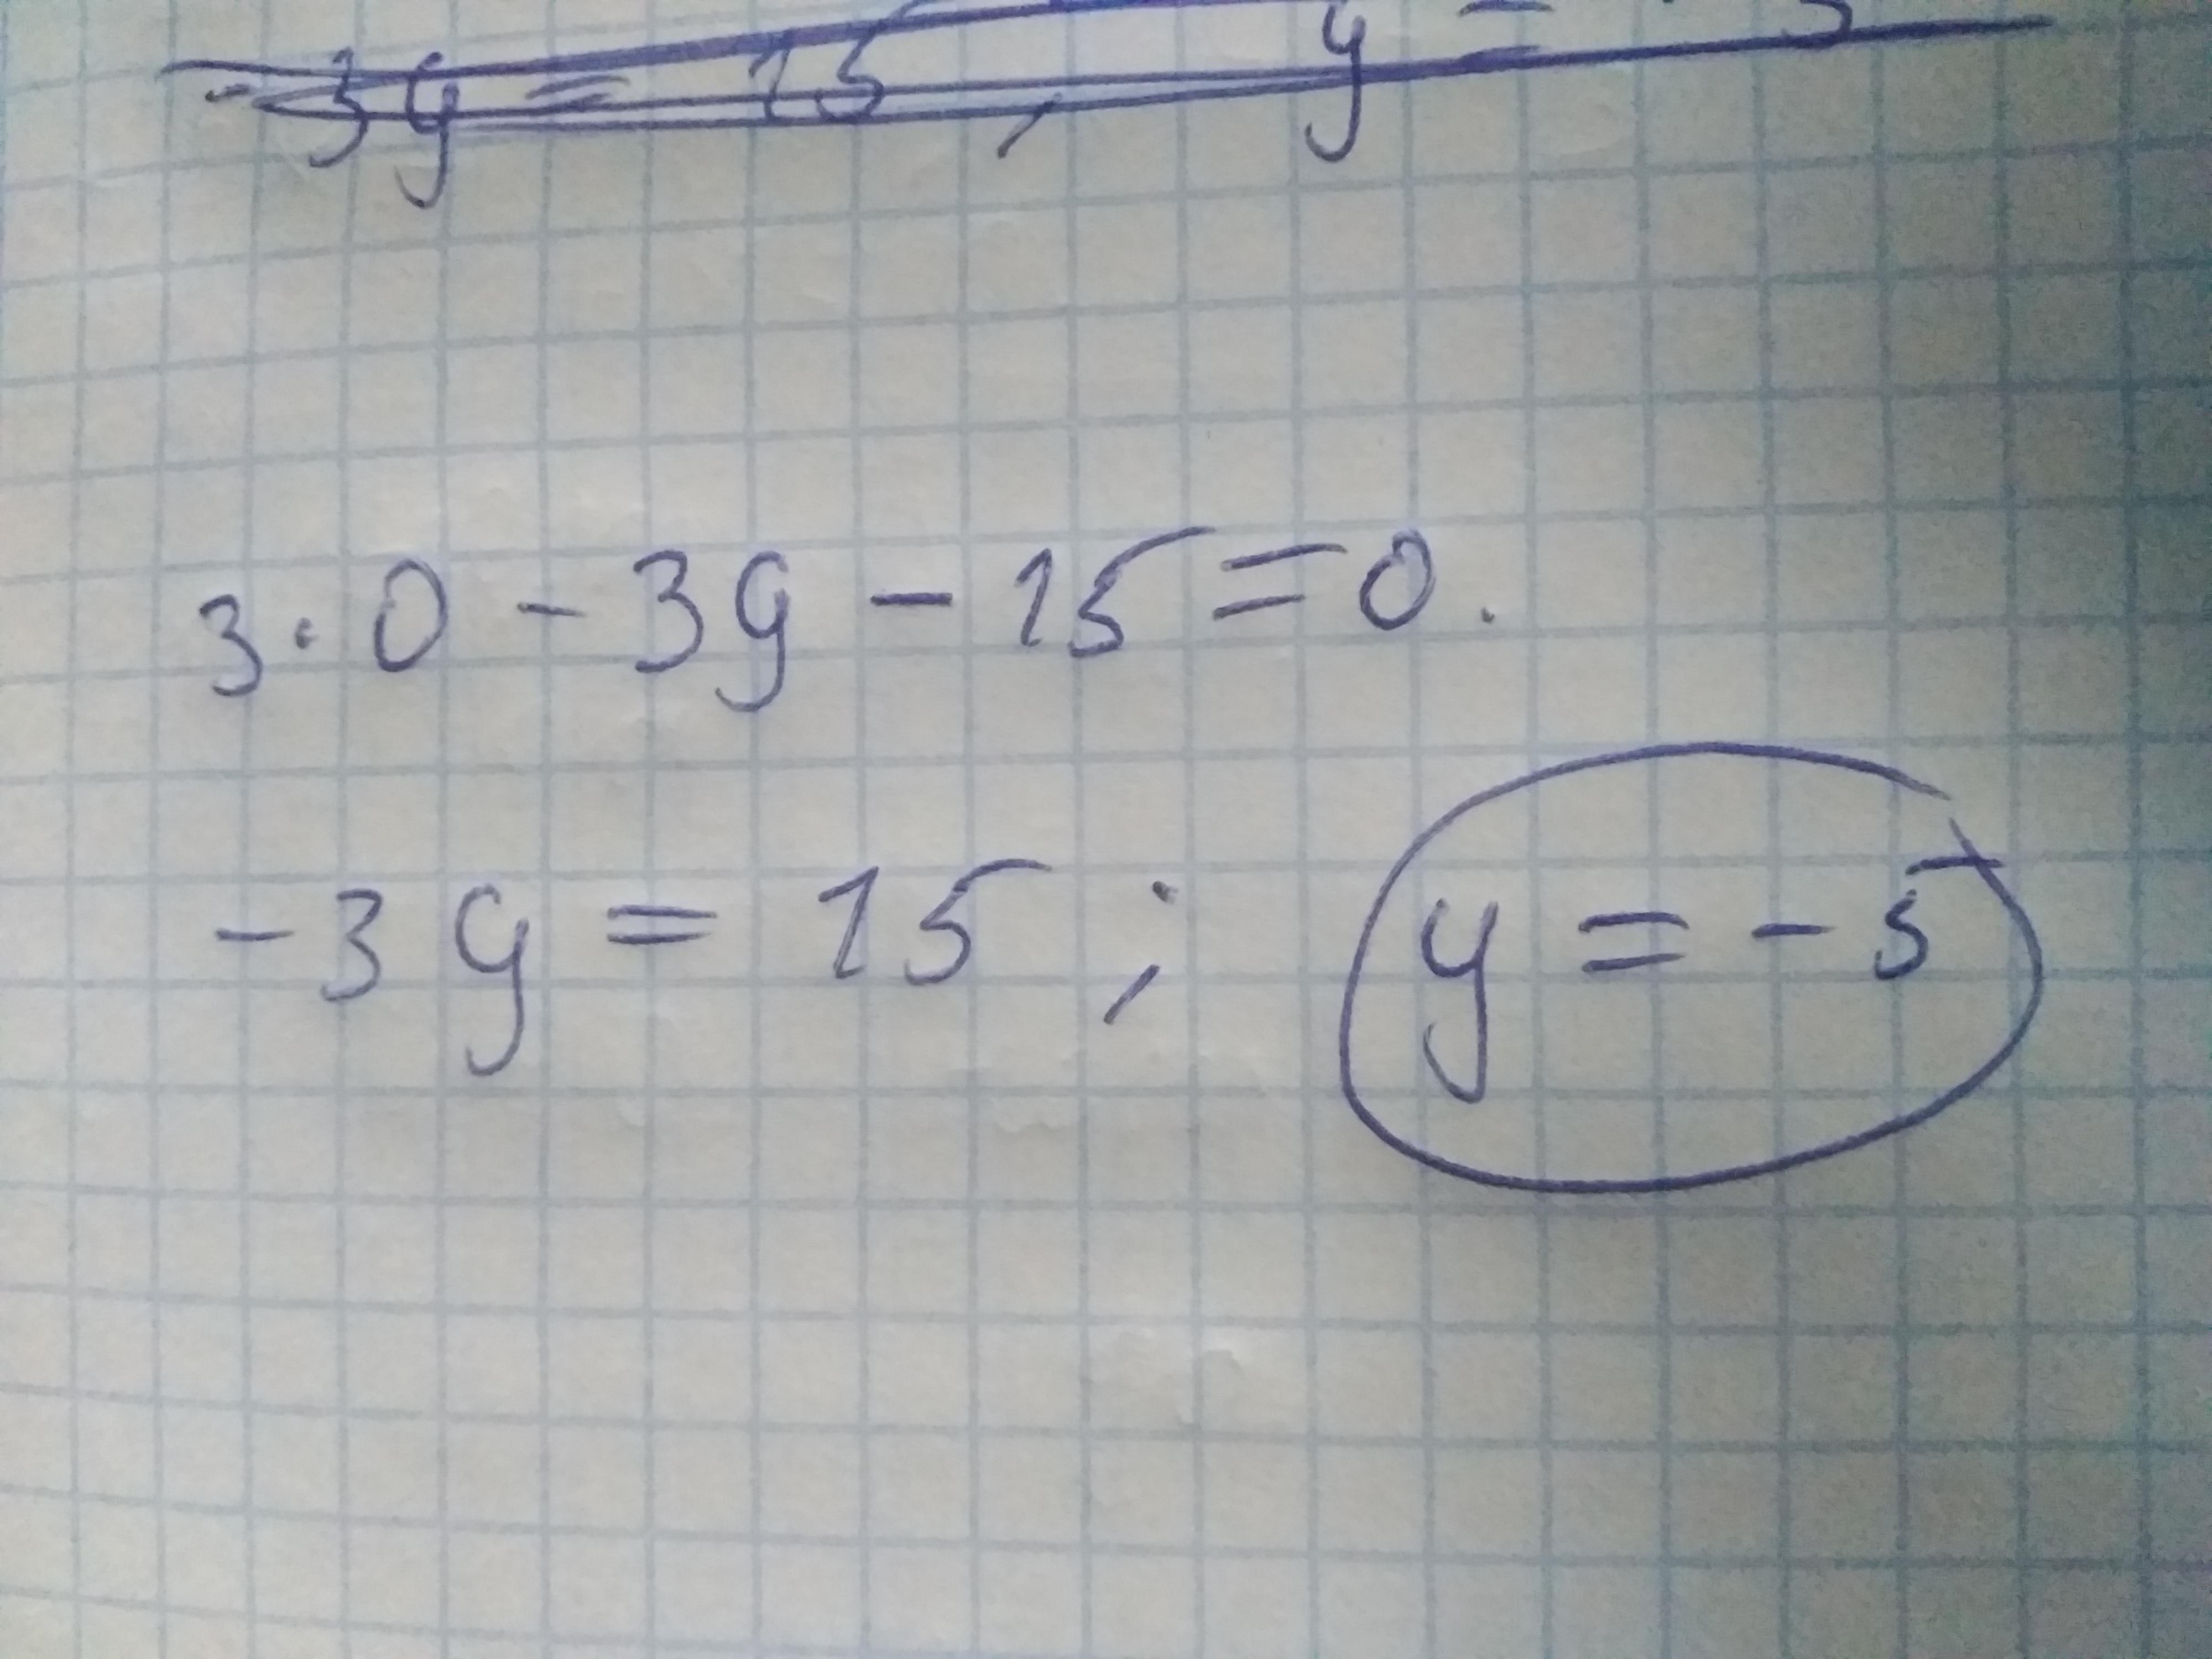 -3y = 15, y =
3·0 - 3y - 15 = 0.
-3y = 15; y = -5